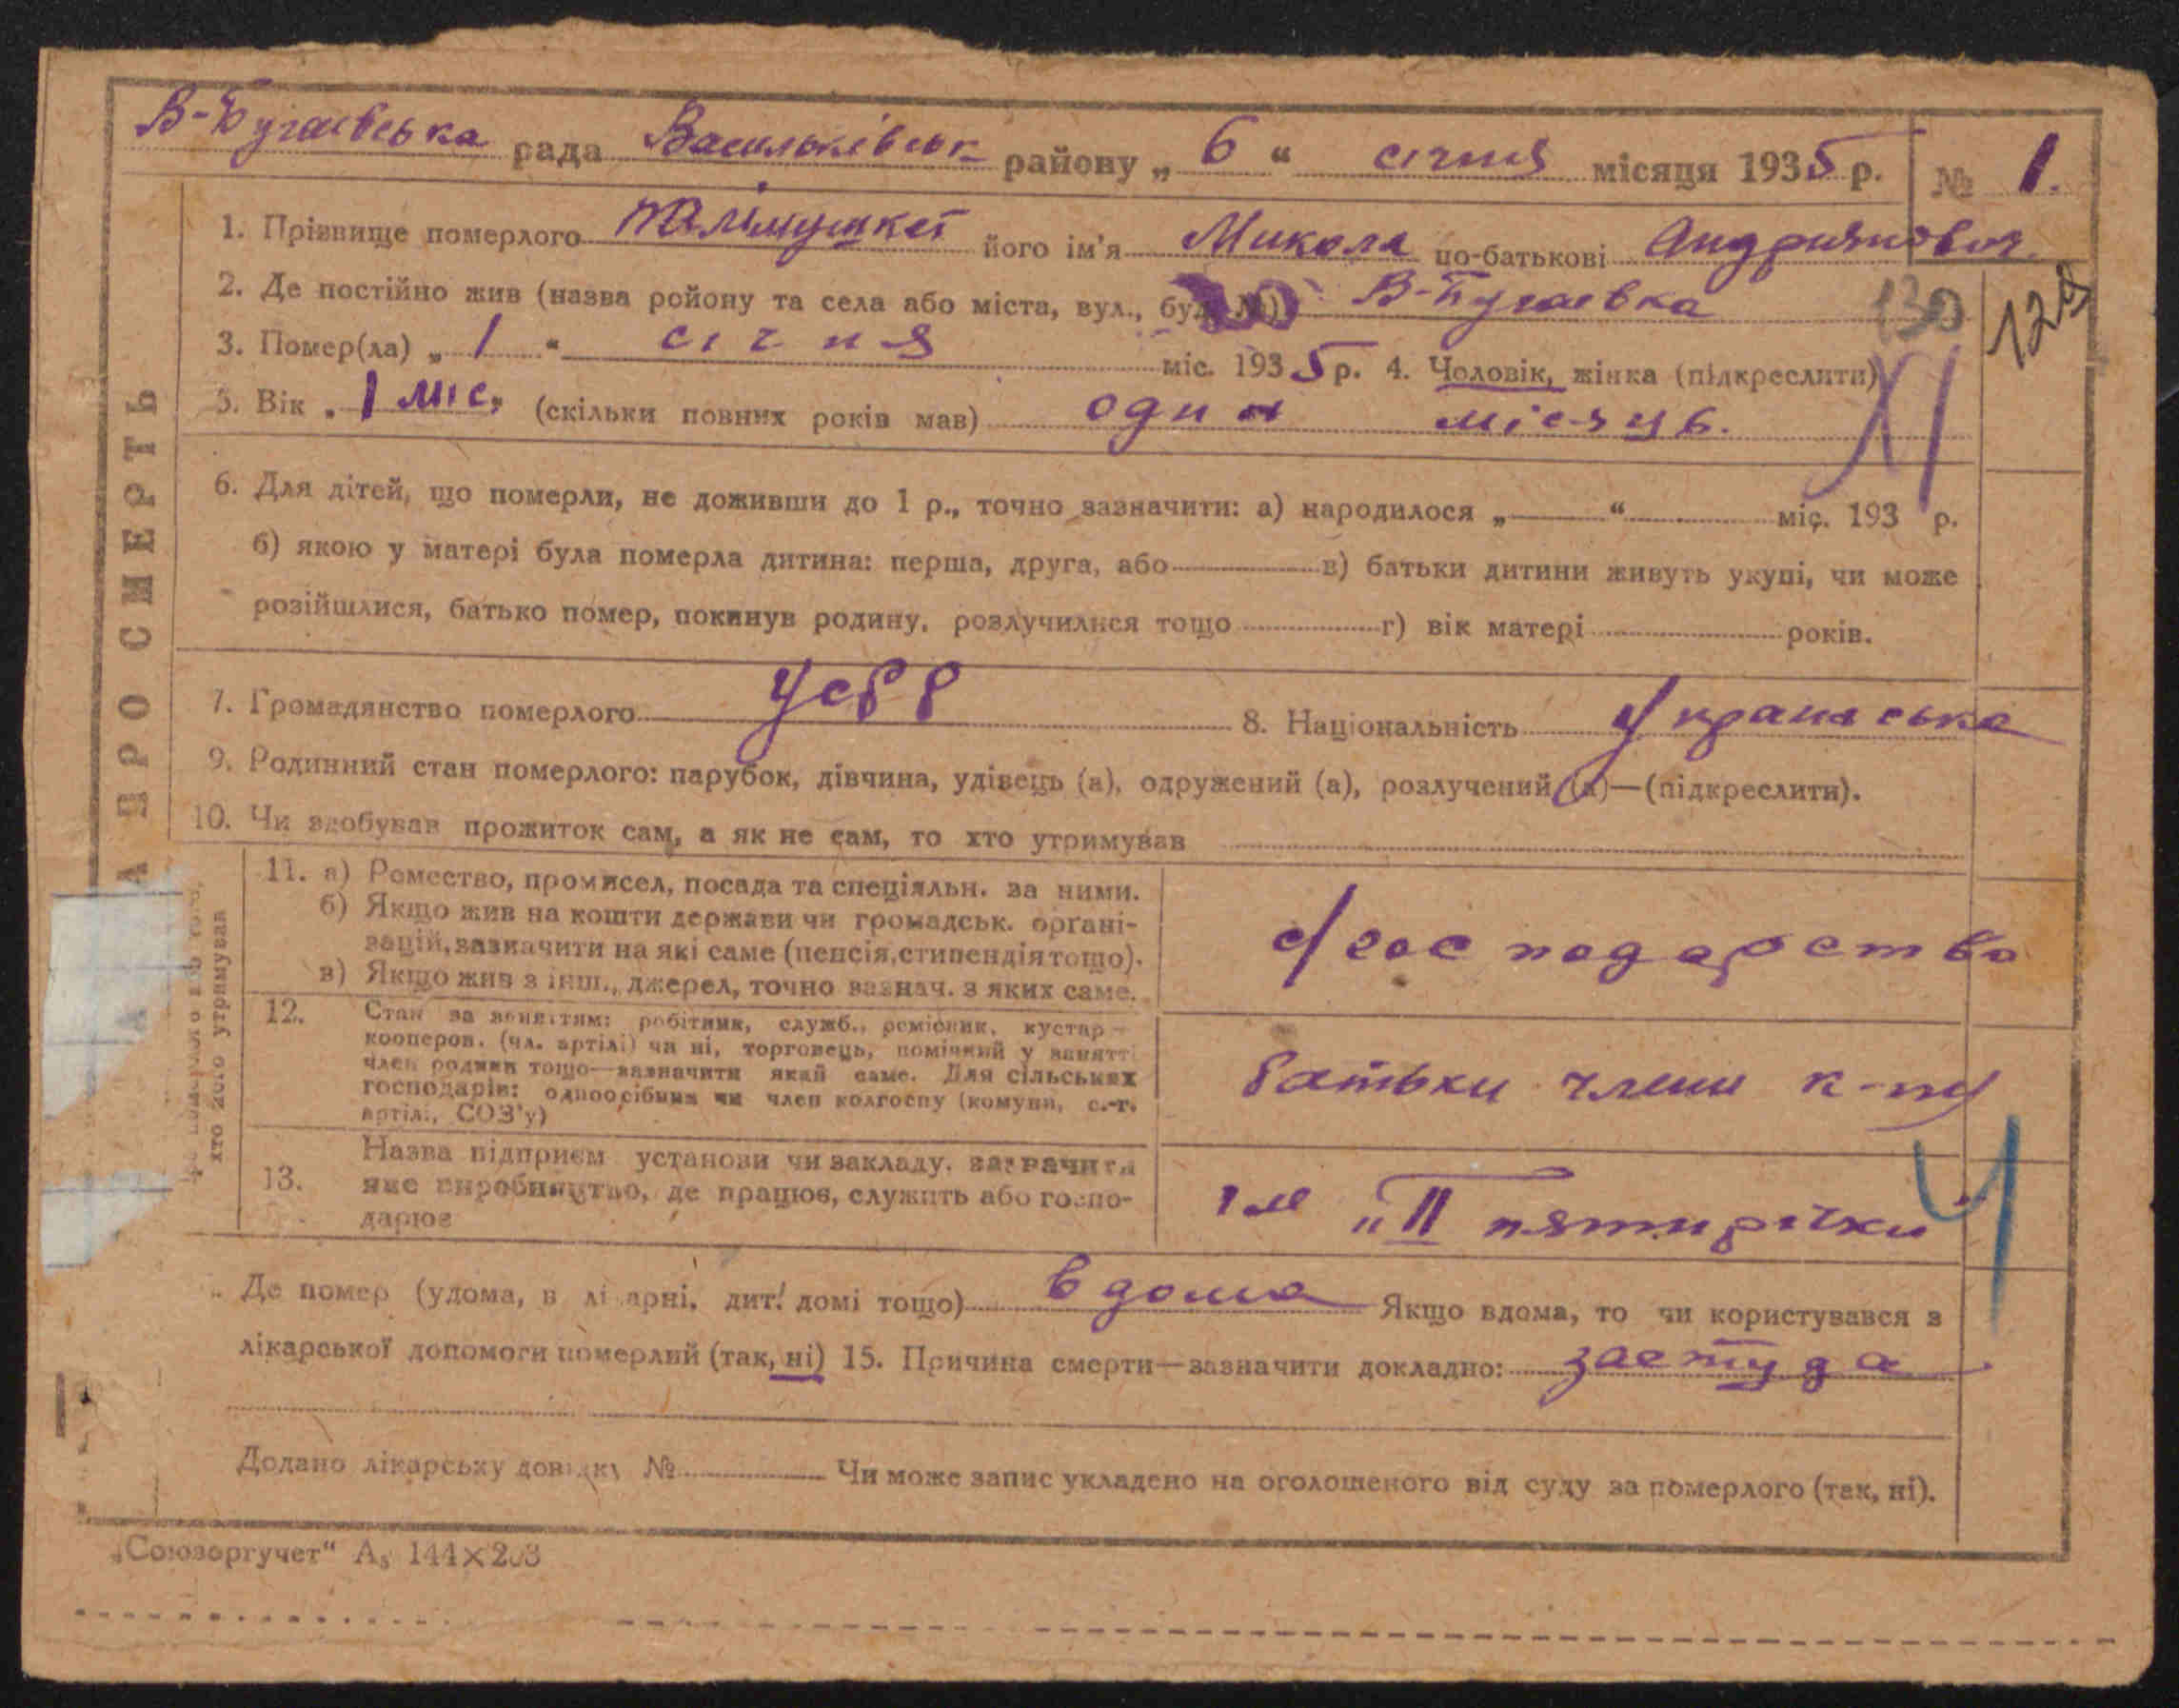 В-Бугаевська рада Васильківськ району „ 6 “ січня місяця 1935 р. № 1.
1. Прізвище померлого його ім'я Микола по-батькові Андриянович.
2. Де постійно жив (назва ройону та села або міста, вул., буд. №) В-Бугаевка 130
129
3. Помер(ла) „ 1 “ січня міс. 1935 р. 4. Чоловік, жінка (підкреслити)
5. Вік „ 1 міс. “ (скільки повних років мав) один місяць.
XI
6. Для дітей, що померли, не доживши до 1 р., точно зазначити: а) народилося „ “ міс. 193 р.
б) якою у матері була померла дитина: перша, друга, або в) батьки дитини живуть укупі, чи може
розійшлися, батько помер, покинув родину, розлучилися тощо г) вік матері років.
7. Громадянство померлого УСРР 8. Національність Українська
9. Родинний стан померлого: парубок, дівчина, удівець (а), одружений (а), розлучений (а)—(підкреслити).
10. Чи здобував прожиток сам, а як не сам, то хто утримував
хто його утримував
11. а) Ремество, промисел, посада та спеціяльн. за ними.
б) Якщо жив на кошти держави чи громадськ. орґані-
зацій, зазначити на які саме (пенсія, стипендія тощо).
в) Якщо жив з інш., джерел, точно зазнач. з яких саме.
с/господарство
12. Стан за заняттям: робітник, служб., ремісник, кустар –
кооперов. (чл. артілі) чи ні, торговець, помічний у занятті
член родини тощо—зазначити який саме. Для сільських
господарів: одноосібник чи член колгоспу (комуни, с.-г.
артілі, СОЗ'у)
батьки члени к-пу
13. Назва підприєм установи чи закладу, зазначити
яке виробництво, де працює, служить або госпо-
дарює
ім „II пятирічки“
4
Де помер (удома, в лікарні, дит. домі тощо) вдома Якщо вдома, то чи користувався з
лікарської допомоги померлий (так, ні) 15. Причина смерти—зазначити докладно: застуда
Додано лікарську довідку № Чи може запис укладено на оголошеного від суду за померлого (так, ні).
„Союзоргучет“ А5 144×203
ПРО СМЕРТЬ